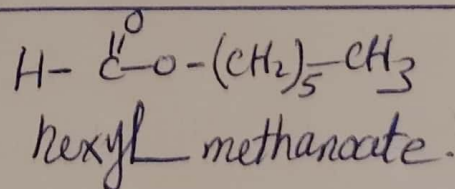 O
H- C-O-(CH₂)₅-CH₃
hexyl methanoate.